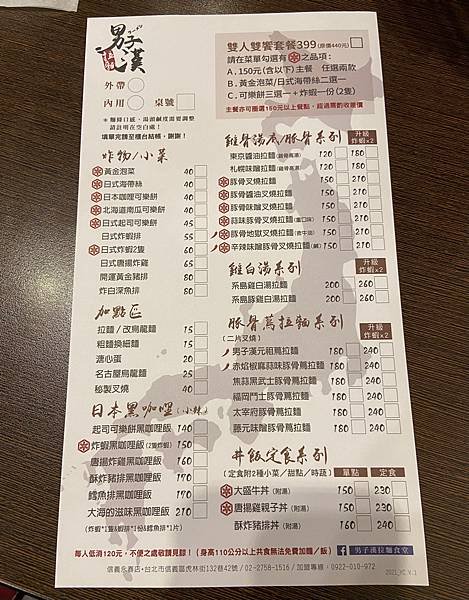 男子漢
外帶
內用 桌號
＊麵條口感、湯頭鹹度需要調整
請註明在空白處！
填單完請至櫃台結帳，謝謝！
雙人雙饗套餐399(原價440元)
請在菜單勾選有之品項:
A．150元(含以下)主餐 任選兩款
B．黃金泡菜/日式海帶絲二選一
C．可樂餅三選一＋炸蝦一份(2隻)
主餐亦可圈選150元以上餐點，超過需酌收差價
炸物/小菜
黃金泡菜 40
日式海帶絲 40
日本咖哩可樂餅 40
北海道南瓜可樂餅 40
日式起司可樂餅 45
日式炸蝦排 55
日式炸蝦2隻 60
日式唐揚炸雞 65
開運黃金豬排 80
炸白深魚排 80
加點區
拉麵／改烏龍麵 15
粗麵換細麵 15
溏心蛋 20
名古屋烏龍麵 25
秘製叉燒 40
日本黑咖哩(小辣)
起司可樂餅黑咖哩飯 140
炸蝦黑咖哩飯(2隻炸蝦) 150
唐揚炸雞黑咖哩飯 160
酥炸豬排黑咖哩飯 170
鱈魚排黑咖哩飯 170
大海的滋味黑咖哩飯 210
(炸蝦*1隻&蝦排*1份&鱈魚排*1片)
雞骨湯底/豚骨系列 升級炸蝦x2
東京醬油拉麵(雞骨高湯) 120 180
札幌味噌拉麵(雞骨高湯) 120 180
豚骨叉燒拉麵 150 210
豚骨醬油叉燒拉麵 150 210
豚骨味噌叉燒拉麵 150 210
蒜味豚骨叉燒拉麵(重口味) 150 210
豚骨地獄叉燒拉麵 150 210
辛辣味噌豚骨叉燒拉麵(鹹) 150 210
雞白湯系列 升級炸蝦x2
系島雞白湯拉麵 200 260
系島豚雞白湯拉麵 200 260
豚骨蔦拉麵系列 升級炸蝦x2
(二片叉燒)
男子漢元祖蔦拉麵 180 240
赤焰椒麻蒜味豚骨蔦拉麵 180 240
焦蒜黑武士豚骨蔦拉麵 180 240
福岡鬥士豚骨蔦拉麵 180 240
太宰府豚骨蔦拉麵 180 240
藤元味噌豚骨蔦拉麵 180 240
丼飯定食系列
(定食附2種小菜／甜點／時蔬) 單點 定食
大盛牛丼(附湯) 150 230
唐揚雞親子丼(附湯) 150 230
酥炸豬排丼(附湯) 160 240
每人低消120元，不便之處敬請見諒！（身高110公分以上共食無法免費加麵／飯）
男子漢拉麵食堂
信義永春店・台北市信義區虎林街132巷42號 / 02-2758-1516 / 加盟專線：0922-010-972
2021_YC_V.1